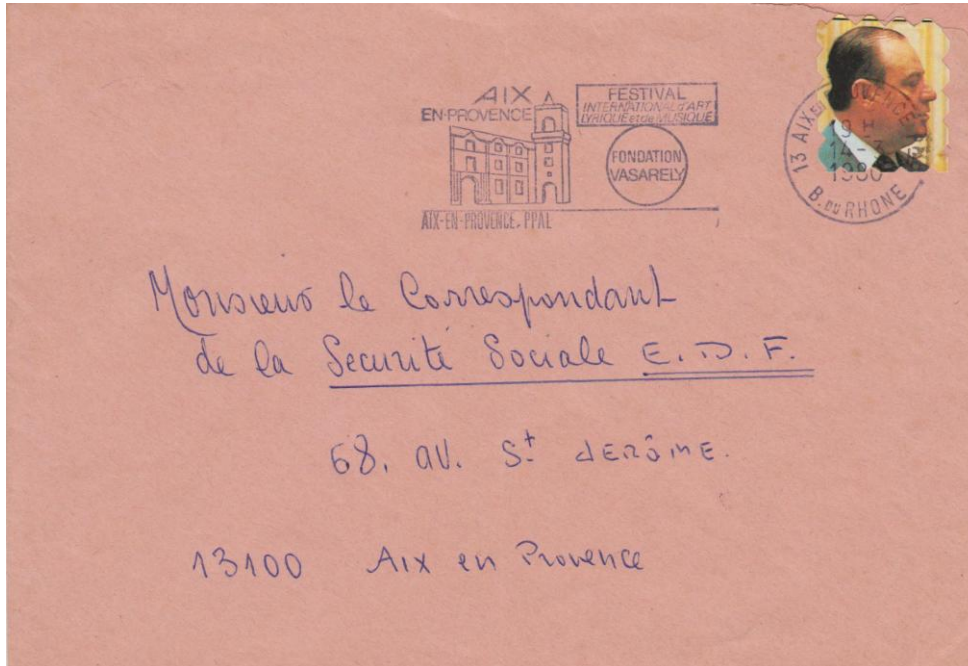 AIX
EN-PROVENCE
FESTIVAL
INTERNATIONAL d'ART
LYRIQUE et de MUSIQUE
FONDATION
VASARELY
AIX-EN-PROVENCE. PPAL
13 AIX EN PROVENCE
19 H
14 -
1980
B. DU RHONE
Monsieur le Correspondant
de la Securité Sociale E.D.F.
68. av. St JERÔME.
13100 Aix en Provence